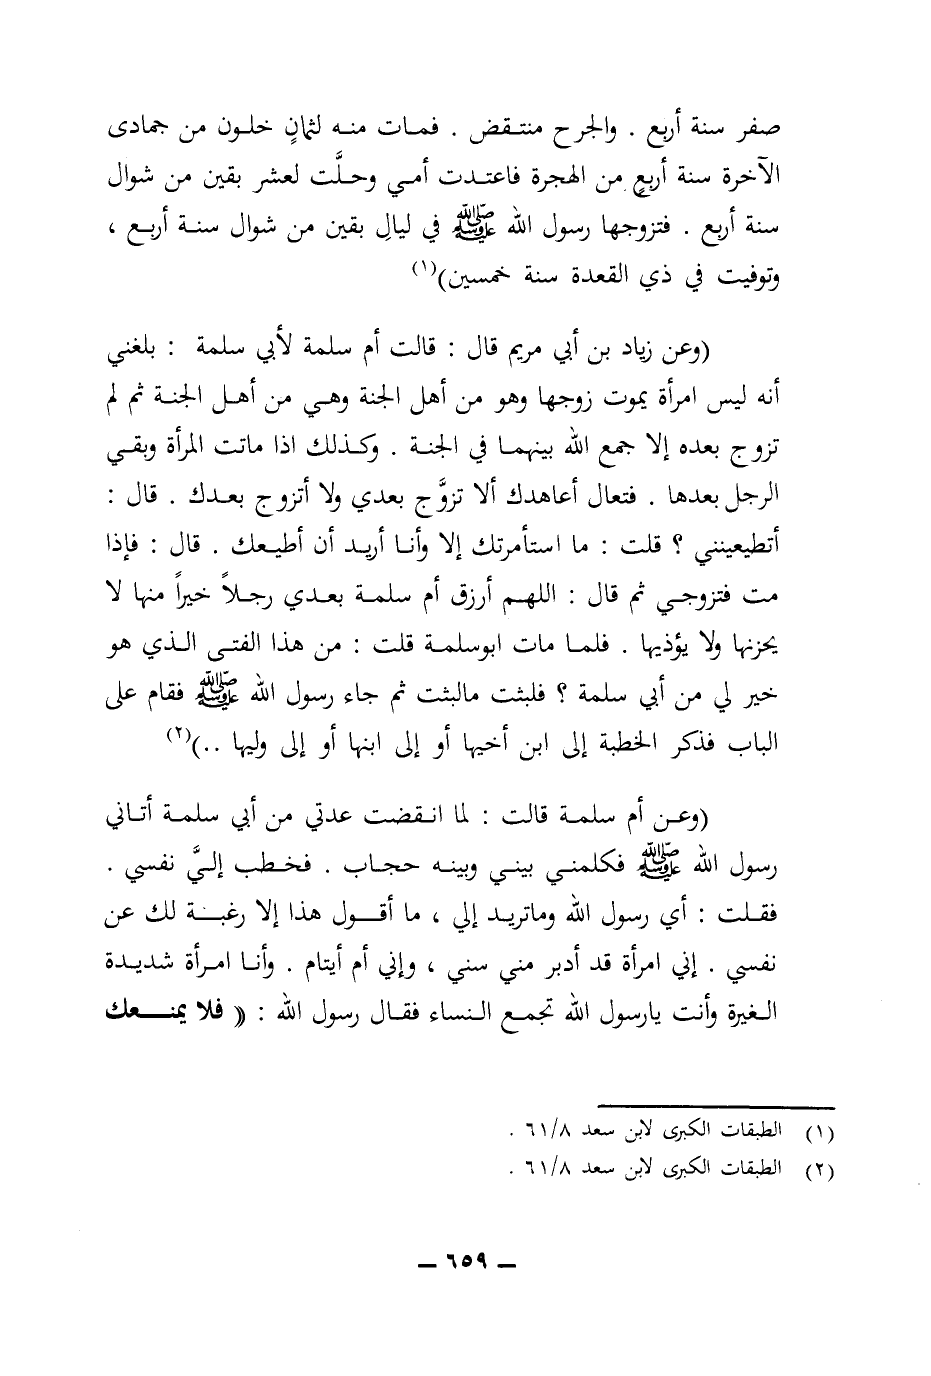 صفر سنة أربع . والجرح منتقض . فمات منه لثمانٍ خلون من جمادى
الآخرة سنة أربعٍ من الهجرة فاعتدت أمي وحلَّت لعشر بقين من شوال
سنة أربع . فتزوجها رسول الله ﷺ في ليالِ بقين من شوال سنة أربع ،
وتوفيت في ذي القعدة سنة خمسين)(١)
(وعن زياد بن أبي مريم قال : قالت أم سلمة لأبي سلمة : بلغني
أنه ليس امرأة يموت زوجها وهو من أهل الجنة وهي من أهل الجنة ثم لم
تزوج بعده إلا جمع الله بينهما في الجنة . وكذلك اذا ماتت المرأة وبقي
الرجل بعدها . فتعال أعاهدك ألا تزوَّج بعدي ولا أتزوج بعدك . قال :
أتطيعينني ؟ قلت : ما استأمرتك إلا وأنا أريد أن أطيعك . قال : فإذا
مت فتزوجي ثم قال : اللهم أرزق أم سلمة بعدي رجلاً خيراً منها لا
يحزنها ولا يؤذيها . فلما مات ابوسلمة قلت : من هذا الفتى الذي هو
خير لي من أبي سلمة ؟ فلبثت مالبثت ثم جاء رسول الله ﷺ فقام على
الباب فذكر الخطبة إلى ابن أخيها أو إلى ابنها أو إلى وليها ..)(٢)
(وعن أم سلمة قالت : لما انقضت عدتي من أبي سلمة أتاني
رسول الله ﷺ فكلمني بيني وبينه حجاب . فخطب إليَّ نفسي .
فقلت : أي رسول الله وماتريد إلي ، ما أقول هذا إلا رغبة لك عن
نفسي . إني امرأة قد أدبر مني سني ، وإني أم أيتام . وأنا امرأة شديدة
الغيرة وأنت يارسول الله تجمع النساء فقال رسول الله : « فلا يمنعك
(١) الطبقات الكبرى لابن سعد ٦١/٨ .
(٢) الطبقات الكبرى لابن سعد ٦١/٨ .
– ٦٥٩ –